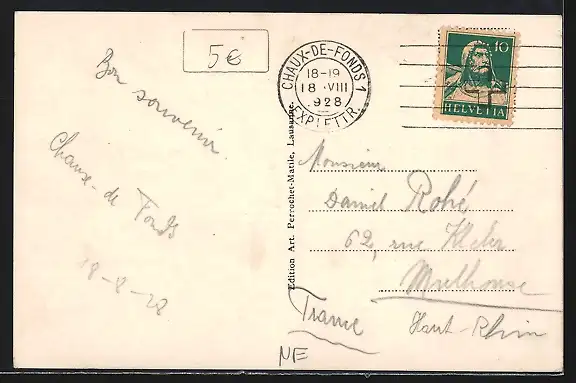 5€
Bon souvenir
Chaux-de Fonds
18-8-28
CHAUX-DE-FONDS 1
18-19
18.VIII
1928
EXP.LETTR.
10
HELVETIA
Edition Art. Perrochet-Matile, Lausanne.
Monsieur
Daniel Rohé
62, rue Kleber
Mulhouse
France
Haut-Rhin
NE